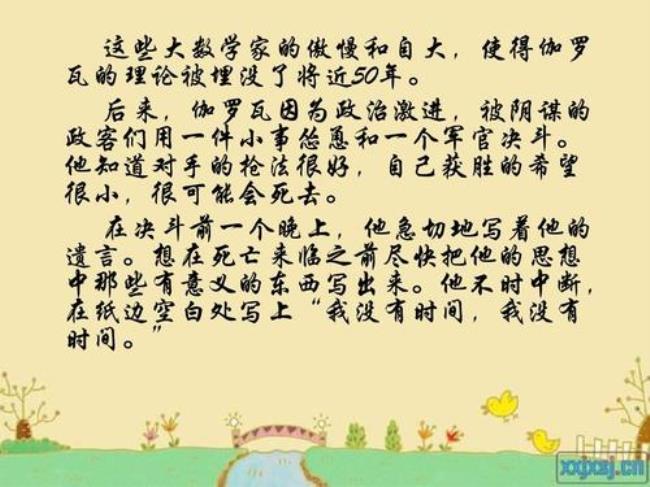 这些大数学家的傲慢和自大，使得伽罗
瓦的理论被埋没了将近50年。
后来，伽罗瓦因为政治激进，被阴谋的
政客们用一件小事怂恿和一个军官决斗。
他知道对手的枪法很好，自己获胜的希望
很小，很可能会死去。
在决斗前一个晚上，他急切地写着他的
遗言。想在死亡来临之前尽快把他的思想
中那些有意义的东西写出来。他不时中断，
在纸边空白处写上“我没有时间，我没有
时间。”
xxjxsj.cn